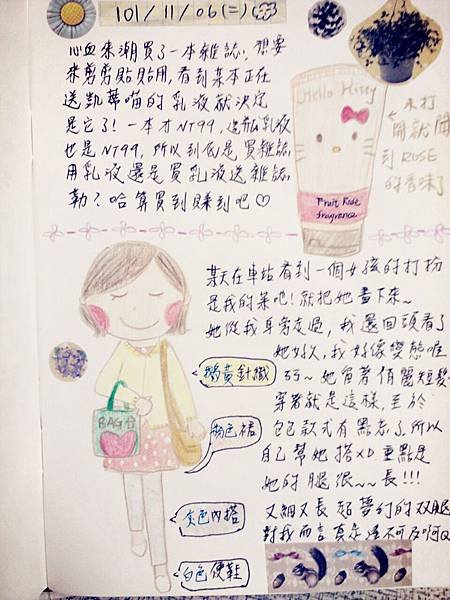 101/11/06(二)
心血來潮買了一本雜誌，想要
來剪剪貼貼用，看到某本正在
送凱蒂喵的乳液就決定
是它了！一本才NT99，這瓶乳液
也是NT99，所以到底是買雜誌
用乳液還是買乳液送雜誌
勒？哈算買到賺到吧♡
Hello Kitty
Fruit Rose
fragrance
←未打
開就聞
到ROSE
的香味了
某天在車站看到一個女孩的打扮
是我的菜吧！就把她畫下來~
她從我身旁走過，我還回頭看了
她好久，我好像變態喔
ㄎㄎ~她留著俏麗短髮
穿著就是這樣，至於
包包款式有點忘了所以
自己幫她搭XD重點是
她的腿很~~長!!!
又細又長 超夢幻的双腿
對我而言真是遙不可及啊Q
鵝黃針織
粉色裙
灰色內搭
白色便鞋
BAG